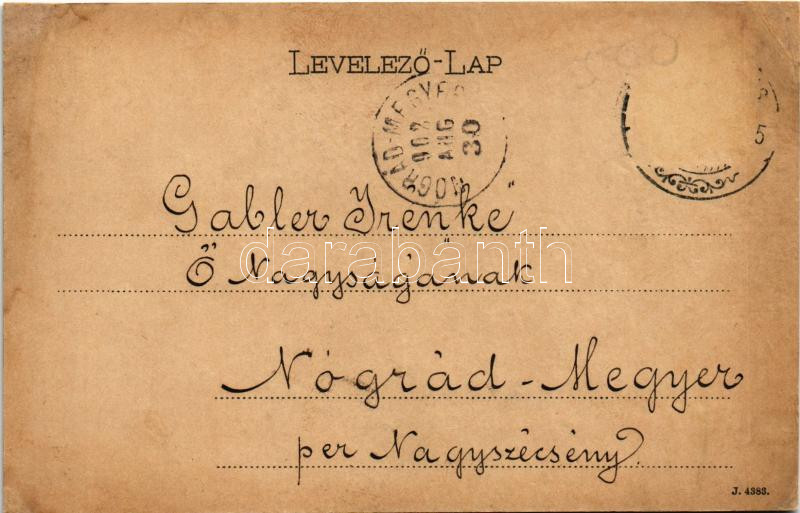 LEVELEZŐ-LAP
NÓGRÁD-MEGYER
902
AUG
30
5
Gabler Irenke"
Ő Nagyságának
darabanth
Nógrád-Megyer
per Nagyszécsény.
J. 4383.